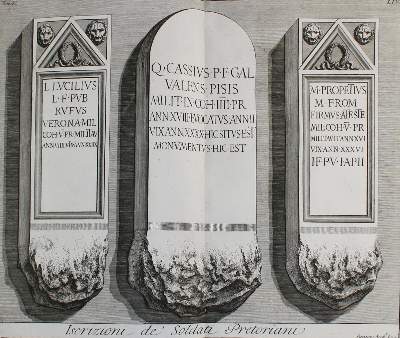 L·LVCILIVS
L·F·PVB
RVFVS
VERONA·MIL
COH·V·PR·MILITAV
Q·CASSIVS·P·F·GAL
VALENS·PISIS
MILIT·IN·COH·IIII·PR
ANN·XVIII·EVOCATVS·ANN·II
VIX·ANN·XXXX·HIC·SITVS·EST
MONVMENTVS·HIC·EST
M·PROPETIVS
M·F·ROM
FIRMVS·ATESTE
MIL·COH·V·PR
MILITAVIT·ANN·XVI
VIX·ANN·XXXVI
Iscrizioni de' Soldati Pretoriani